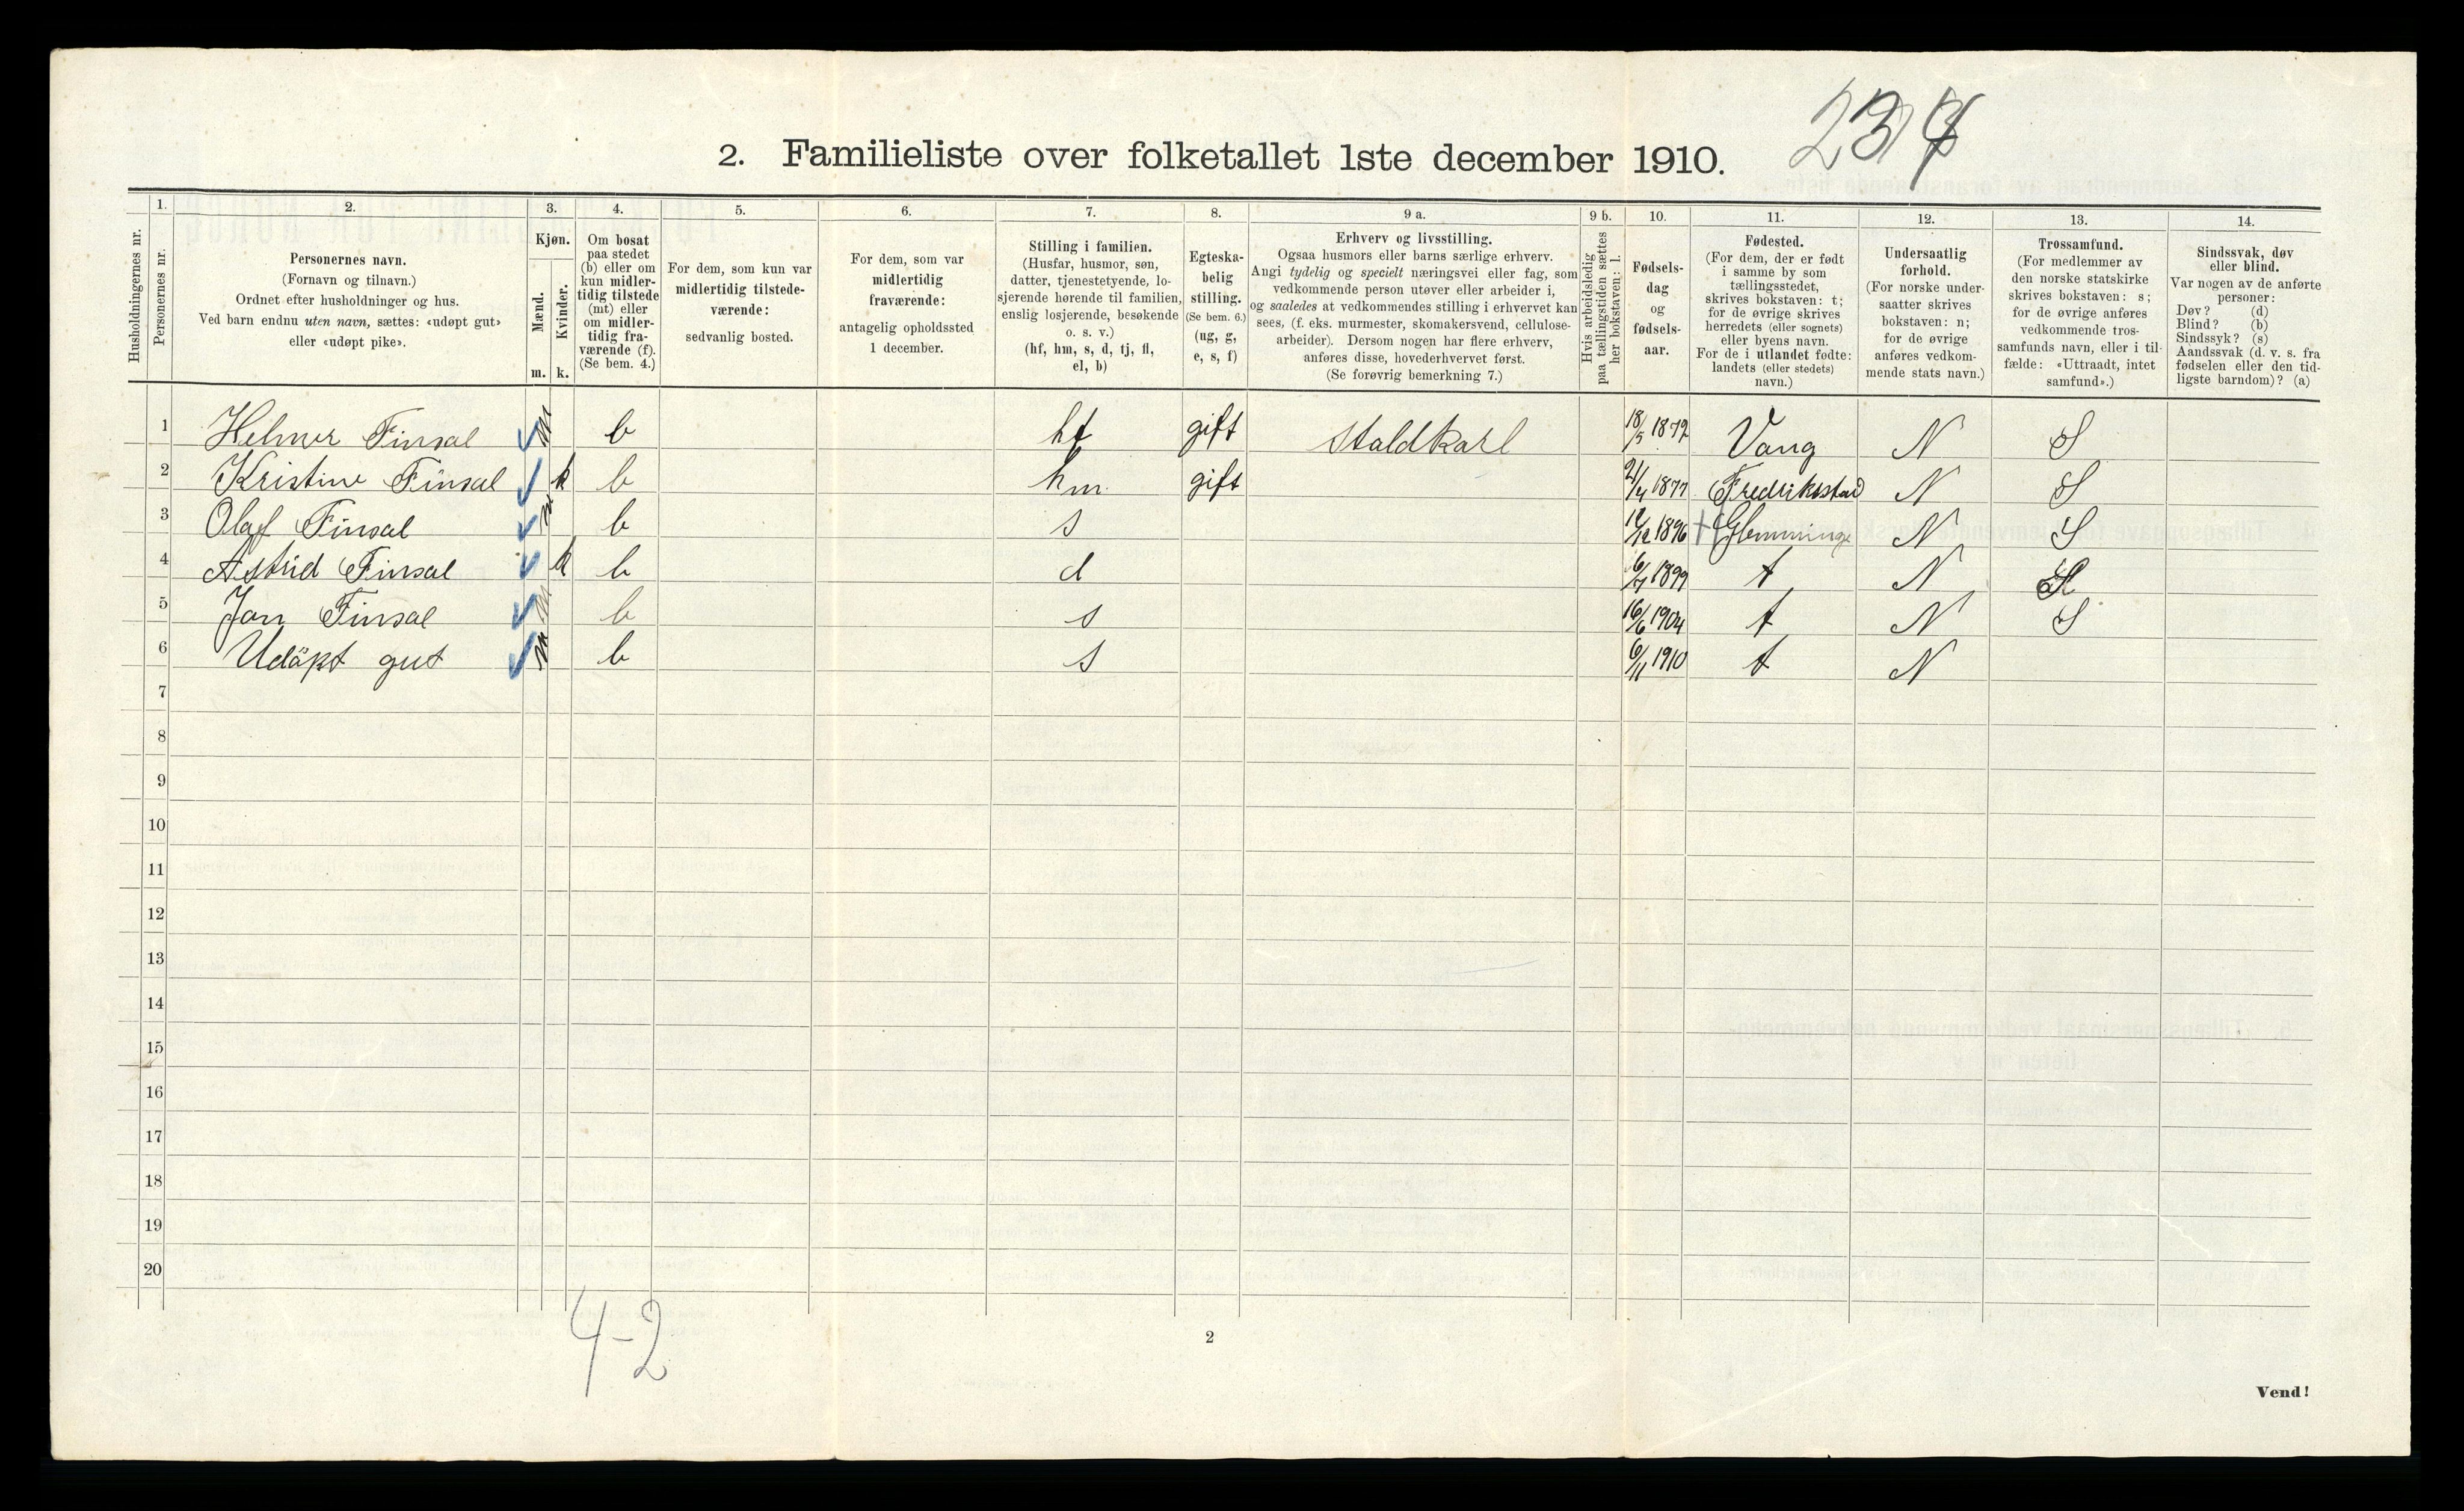 2. Familieliste over folketallet 1ste december 1910.
Husholdningernes nr.
1.
Personernes nr.
2.
Personernes navn.
(Fornavn og tilnavn.)
Ordnet efter husholdninger og hus.
Ved barn endnu uten navn, sættes: «udøpt gut»
eller «udøpt pike».
3.
Kjøn.
Mænd.
Kvinder.
m. k.
4.
Om bosat
paa stedet
(b) eller om
kun midler-
tidig tilstede
(mt) eller
om midler-
tidig fra-
værende (f).
(Se bem. 4.)
5.
For dem, som kun var
midlertidig tilstede-
værende:
sedvanlig bosted.
6.
For dem, som var
midlertidig
fraværende:
antagelig opholdssted
1 december.
7.
Stilling i familien.
(Husfar, husmor, søn,
datter, tjenestetyende, lo-
sjerende hørende til familien,
enslig losjerende, besøkende
o. s. v.)
(hf, hm, s, d, tj, fl,
el, b)
8.
Egteska-
belig
stilling.
(Se bem. 6.)
(ug, g,
e, s, f)
9 a.
Erhverv og livsstilling.
Ogsaa husmors eller barns særlige erhverv.
Angi tydelig og specielt næringsvei eller fag, som
vedkommende person utøver eller arbeider i,
og saaledes at vedkommendes stilling i erhvervet kan
sees, (f. eks. murmester, skomakersvend, cellulose-
arbeider). Dersom nogen har flere erhverv,
anføres disse, hovederhvervet først.
(Se forøvrig bemerkning 7.)
9 b.
Hvis arbeidsledig
paa tællingstiden sættes
her bokstaven: l.
10.
Fødsels-
dag
og
fødsels-
aar.
11.
Fødested.
(For dem, der er født
i samme by som
tællingsstedet,
skrives bokstaven: t;
for de øvrige skrives
herredets (eller sognets)
eller byens navn.
For de i utlandet fødte:
landets (eller stedets)
navn.)
12.
Undersaatlig
forhold.
(For norske under-
saatter skrives
bokstaven: n;
for de øvrige
anføres vedkom-
mende stats navn.)
13.
Trossamfund.
(For medlemmer av
den norske statskirke
skrives bokstaven: s;
for de øvrige anføres
vedkommende tros-
samfunds navn, eller i til-
fælde: «Uttraadt, intet
samfund».)
14.
Sindssvak, døv
eller blind.
Var nogen av de anførte
personer:
Døv? (d)
Blind? (b)
Sindssyk? (s)
Aandssvak (d. v. s. fra
fødselen eller den tid-
ligste barndom)? (a)
1 Helmer Finsal m b hf gift Staldkarl 18/5 1872 Vang N S
2 Kristine Finsal k b hm gift 21/4 1877 Fredrikstad N S
3 Olaf Finsal m b s 12/12 1896 Glemminge N S
4 Astrid Finsal k b d 6/7 1899 t N S
5 Jan Finsal m b s 16/6 1904 t N S
6 Udöpt gut m b s 6/11 1910 t N
7
8
9
10
11
12
13
14
15
16
17
18
19
20
4-2
2
Vend!